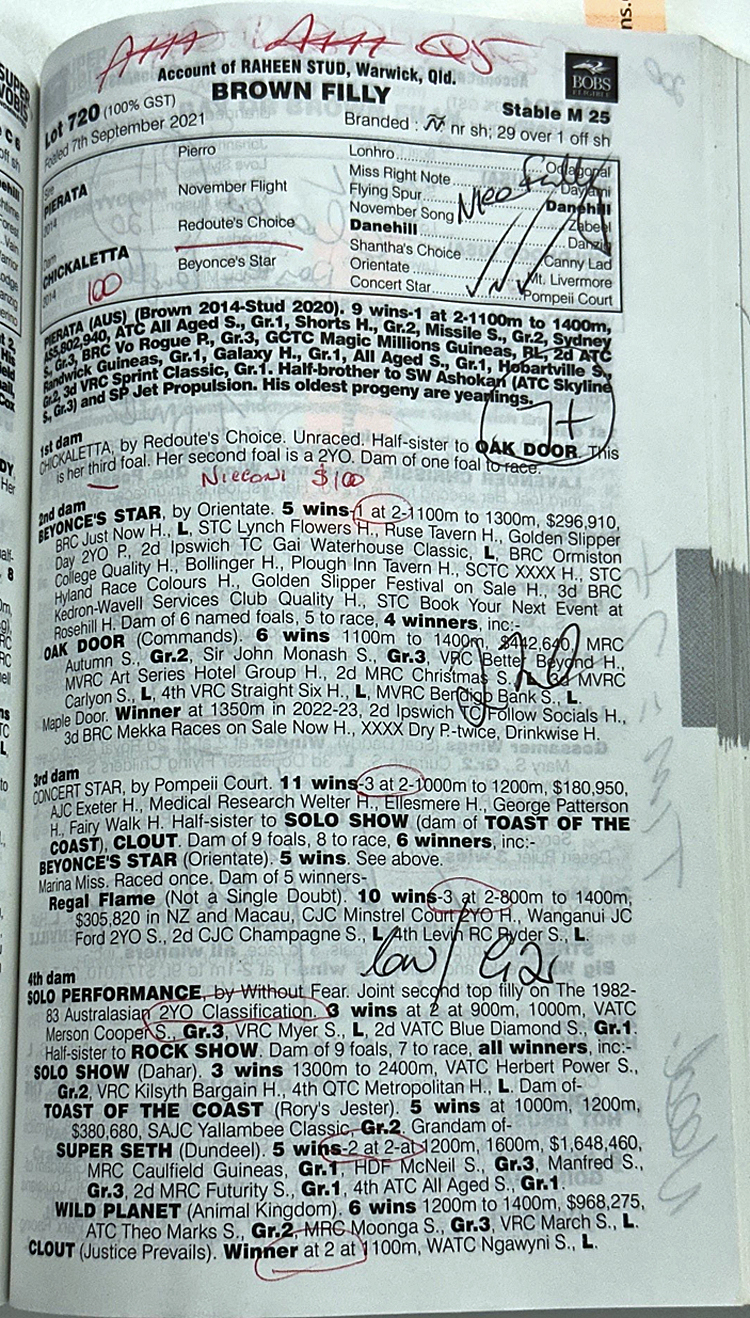 Account of RAHEEN STUD, Warwick, Qld.
BOBS
ELIGIBLE
BROWN FILLY
Lot 720 (100% GST)
Stable M 25
Foaled 7th September 2021
Branded : nr sh; 29 over 1 off sh
Sire
PIERATA
2014
Pierro
Lonhro
Octagonal
Miss Right Note
Daylami
November Flight
Flying Spur
Danehill
November Song
Zabeel
Neo Filly
Dam
CHICKALETTA
2014
100
Redoute's Choice
Danehill
Danzig
Shantha's Choice
Canny Lad
Beyonce's Star
Orientate
Mt. Livermore
Concert Star
Pompeii Court
PIERATA (AUS) (Brown 2014-Stud 2020). 9 wins-1 at 2-1100m to 1400m,
A$5,802,940, ATC All Aged S., Gr.1, Shorts H., Gr.2, Missile S., Gr.2, Sydney
S., Gr.3, BRC Vo Rogue P., Gr.3, GCTC Magic Millions Guineas, RL, 2d ATC
Randwick Guineas, Gr.1, Galaxy H., Gr.1, All Aged S., Gr.1, Hobartville S.,
Gr.2, 3d VRC Sprint Classic, Gr.1. Half-brother to SW Ashokan (ATC Skyline
S., Gr.3) and SP Jet Propulsion. His oldest progeny are yearlings.
7+
1st dam
CHICKALETTA, by Redoute's Choice. Unraced. Half-sister to OAK DOOR. This
is her third foal. Her second foal is a 2YO. Dam of one foal to race.
NICCONI $100
2nd dam
BEYONCE'S STAR, by Orientate. 5 wins-1 at 2-1100m to 1300m, $296,910,
BRC Just Now H., L, STC Lynch Flowers H., Ruse Tavern H., Golden Slipper
Day 2YO P., 2d Ipswich TC Gai Waterhouse Classic, L, BRC Ormiston
College Quality H., Bollinger H., Plough Inn Tavern H., SCTC XXXX H., STC
Hyland Race Colours H., Golden Slipper Festival on Sale H., 3d BRC
Kedron-Wavell Services Club Quality H., STC Book Your Next Event at
Rosehill H. Dam of 6 named foals, 5 to race, 4 winners, inc:-
OAK DOOR (Commands). 6 wins 1100m to 1400m, $442,640, MRC
Autumn S., Gr.2, Sir John Monash S., Gr.3, VRC Bettor Beyond H.,
MVRC Art Series Hotel Group H., 2d MRC Christmas S., L, 3d MVRC
Carlyon S., L, 4th VRC Straight Six H., L, MVRC Bendigo Bank S., L.
Maple Door. Winner at 1350m in 2022-23, 2d Ipswich TC Follow Socials H.,
3d BRC Mekka Races on Sale Now H., XXXX Dry P.-twice, Drinkwise H.
3rd dam
CONCERT STAR, by Pompeii Court. 11 wins-3 at 2-1000m to 1200m, $180,950,
AJC Exeter H., Medical Research Welter H., Ellesmere H., George Patterson
H., Fairy Walk H. Half-sister to SOLO SHOW (dam of TOAST OF THE
COAST), CLOUT. Dam of 9 foals, 8 to race, 6 winners, inc:-
BEYONCE'S STAR (Orientate). 5 wins. See above.
Marina Miss. Raced once. Dam of 5 winners-
Regal Flame (Not a Single Doubt). 10 wins-3 at 2-800m to 1400m,
$305,820 in NZ and Macau, CJC Minstrel Court 2YO H., Wanganui JC
Ford 2YO S., 2d CJC Champagne S., L, 4th Levin RC Ryder S., L.
4th dam
SOLO PERFORMANCE, by Without Fear. Joint second top filly on The 1982-
83 Australasian 2YO Classification. 3 wins at 2 at 900m, 1000m, VATC
Merson Cooper S., Gr.3, VRC Myer S., L, 2d VATC Blue Diamond S., Gr.1.
Half-sister to ROCK SHOW. Dam of 9 foals, 7 to race, all winners, inc:-
SOLO SHOW (Dahar). 3 wins 1300m to 2400m, VATC Herbert Power S.,
Gr.2, VRC Kilsyth Bargain H., 4th QTC Metropolitan H., L. Dam of-
TOAST OF THE COAST (Rory's Jester). 5 wins at 1000m, 1200m,
$380,680, SAJC Yallambee Classic, Gr.2. Grandam of-
SUPER SETH (Dundeel). 5 wins-2 at 2-at 1200m, 1600m, $1,648,460,
MRC Caulfield Guineas, Gr.1, HDF McNeil S., Gr.3, Manfred S.,
Gr.3, 2d MRC Futurity S., Gr.1, 4th ATC All Aged S., Gr.1.
WILD PLANET (Animal Kingdom). 6 wins 1200m to 1400m, $968,275,
ATC Theo Marks S., Gr.2, MRC Moonga S., Gr.3, VRC March S., L.
CLOUT (Justice Prevails). Winner at 2 at 1100m, WATC Ngawyni S., L.